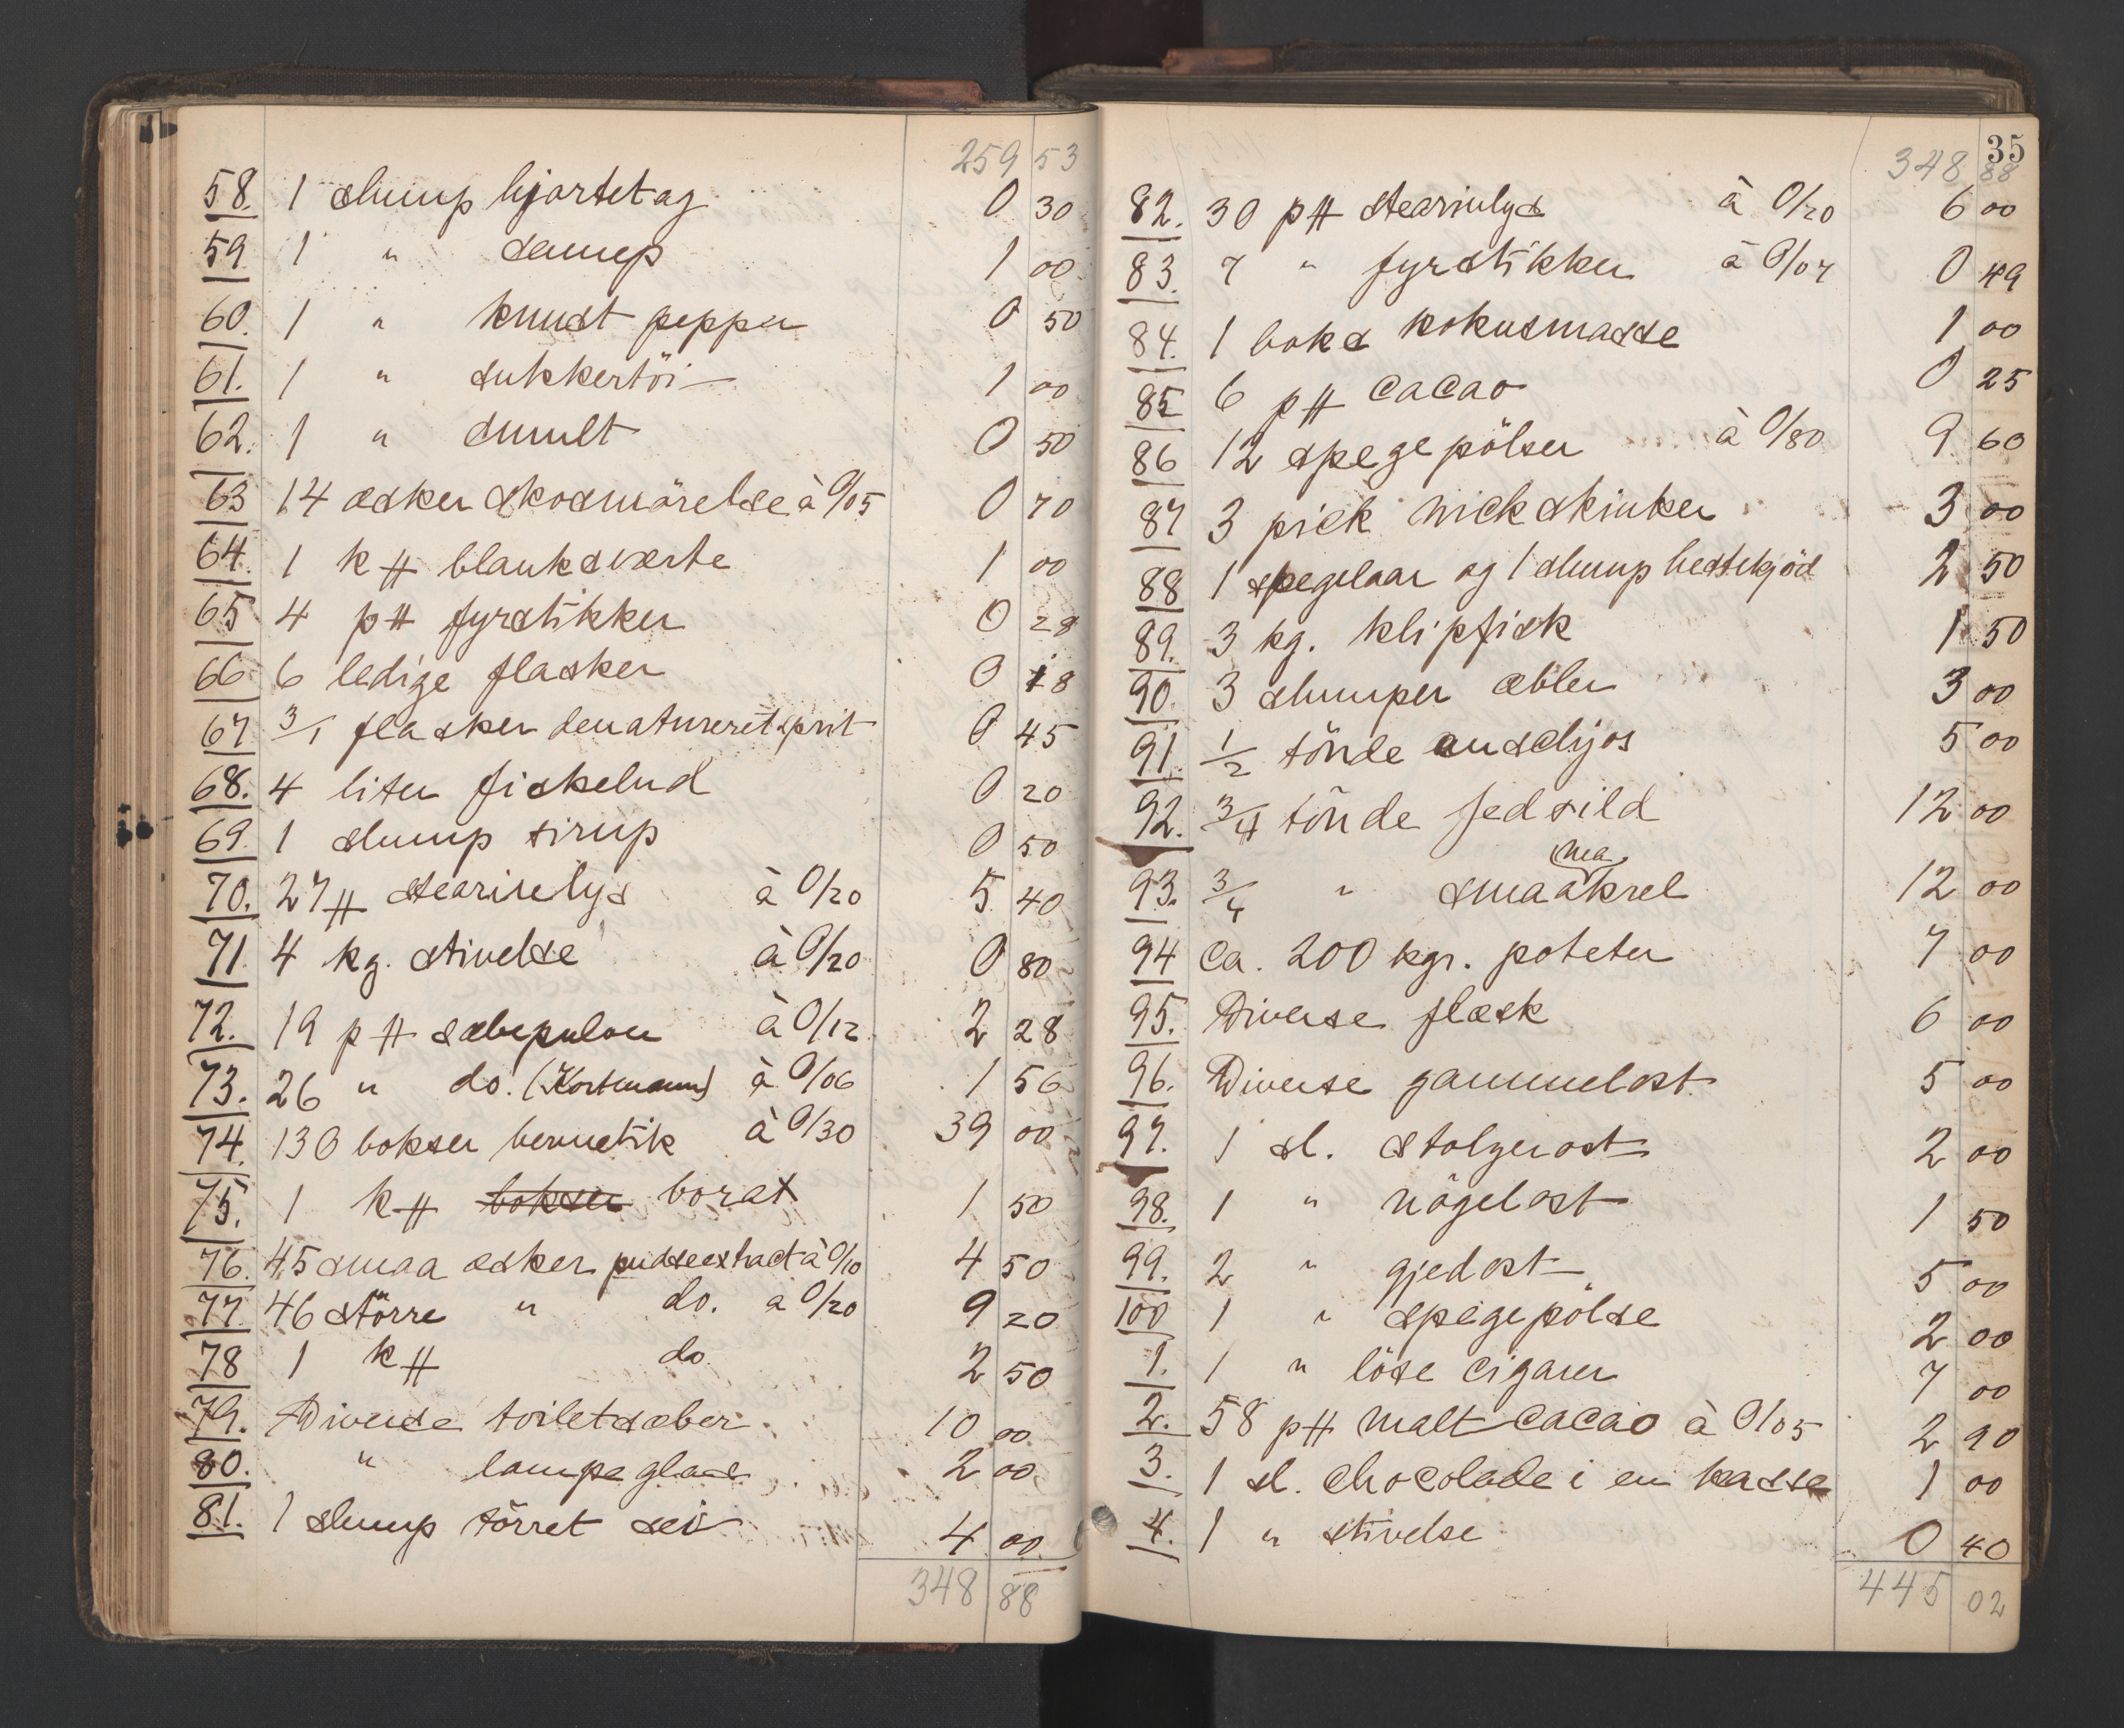 259 53
58. 1 slump hjortetag 0 30
59. 1 " sennep 1 00
60. 1 " knust pepper 0 50
61. 1 " sukkertöi 1 00
62. 1 " smult 0 50
63 14 æsker skosmörelse à 0/05 0 70
64. 1 k# blanksværte 1 00
65 4 p# fyrstikker 0 28
66 6 ledige flasker 0 18
67 3/1 flasker denatureret sprit 0 45
68. 4 liter fiskelud 0 20
69. 1 slump sirup 0 50
70. 27 # stearinlys à 0/20 5 40
71 4 kg. stivelse à 0/20 0 80
72. 19 p# sæbepulver à 0/12 2 28
73. 26 " do. (Kortmann) à 0/06 1 56
74. 130 bokser hermetik à 0/30 39 00
75. 1 k# bokser borax 1 50
76. 45 smaa æsker pudseextract à 0/10 4 50
77. 46 större " do. a 0/20 9 20
78 1 k# do 2 50
79. Diverse toiletsæber 10 00
80. " lampeglas 2 00
81. 1 slump törret sei 4 00
348 88
35
348 88
82. 30 p# stearinlys à 0/20 6 00
83. 7 " fyrstikker à 0/07 0 49
84. 1 boks kokusmasse 1 00
85 6 p# cacao 0 25
86 12 spegepölser à 0/80 9 60
87 3 pick nickskinker 3 00
88 1 spegelaar og 1 slump hestekjöd 2 50
89. 3 kg. klipfisk 1 50
90. 3 slumper æbler 3 00
91. 1/2 tönde anschjos 5 00
92. 3/4 tönde fedsild 12 00
ma
93. 3/4 " smaakrel 12 00
94 Ca. 200 kgr. poteter 7 00
95. Diverse flæsk 6 00
96. Diverse gammelost 5 00
97. 1 sl. stolgerost 2 00
98. 1 " nögelost 1 50
99. 2 " gjedost 5 00
100 1 " spegepölse 2 00
1. 1 " löse cigarer 7 00
2. 58 p# malt cacao à 0/05 2 90
3. 1 sl. chocolade i en kasse 1 00
4. 1 " stivelse 0 40
445 02